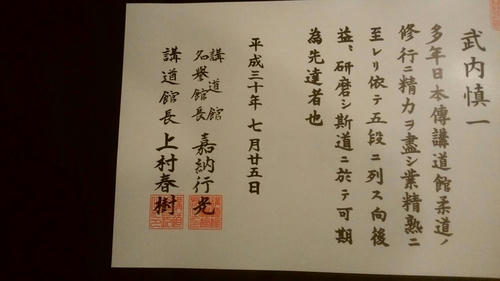 武内慎一
多年日本傳講道館柔道ノ
修行ニ精力ヲ盡シ業精熟ニ
至レリ依テ五段ニ列ス向後
益〻研磨シ斯道ニ於テ可期
為先達者也
平成三十年七月廿五日
講道館
名譽館長 嘉納行光
講道館長 上村春樹